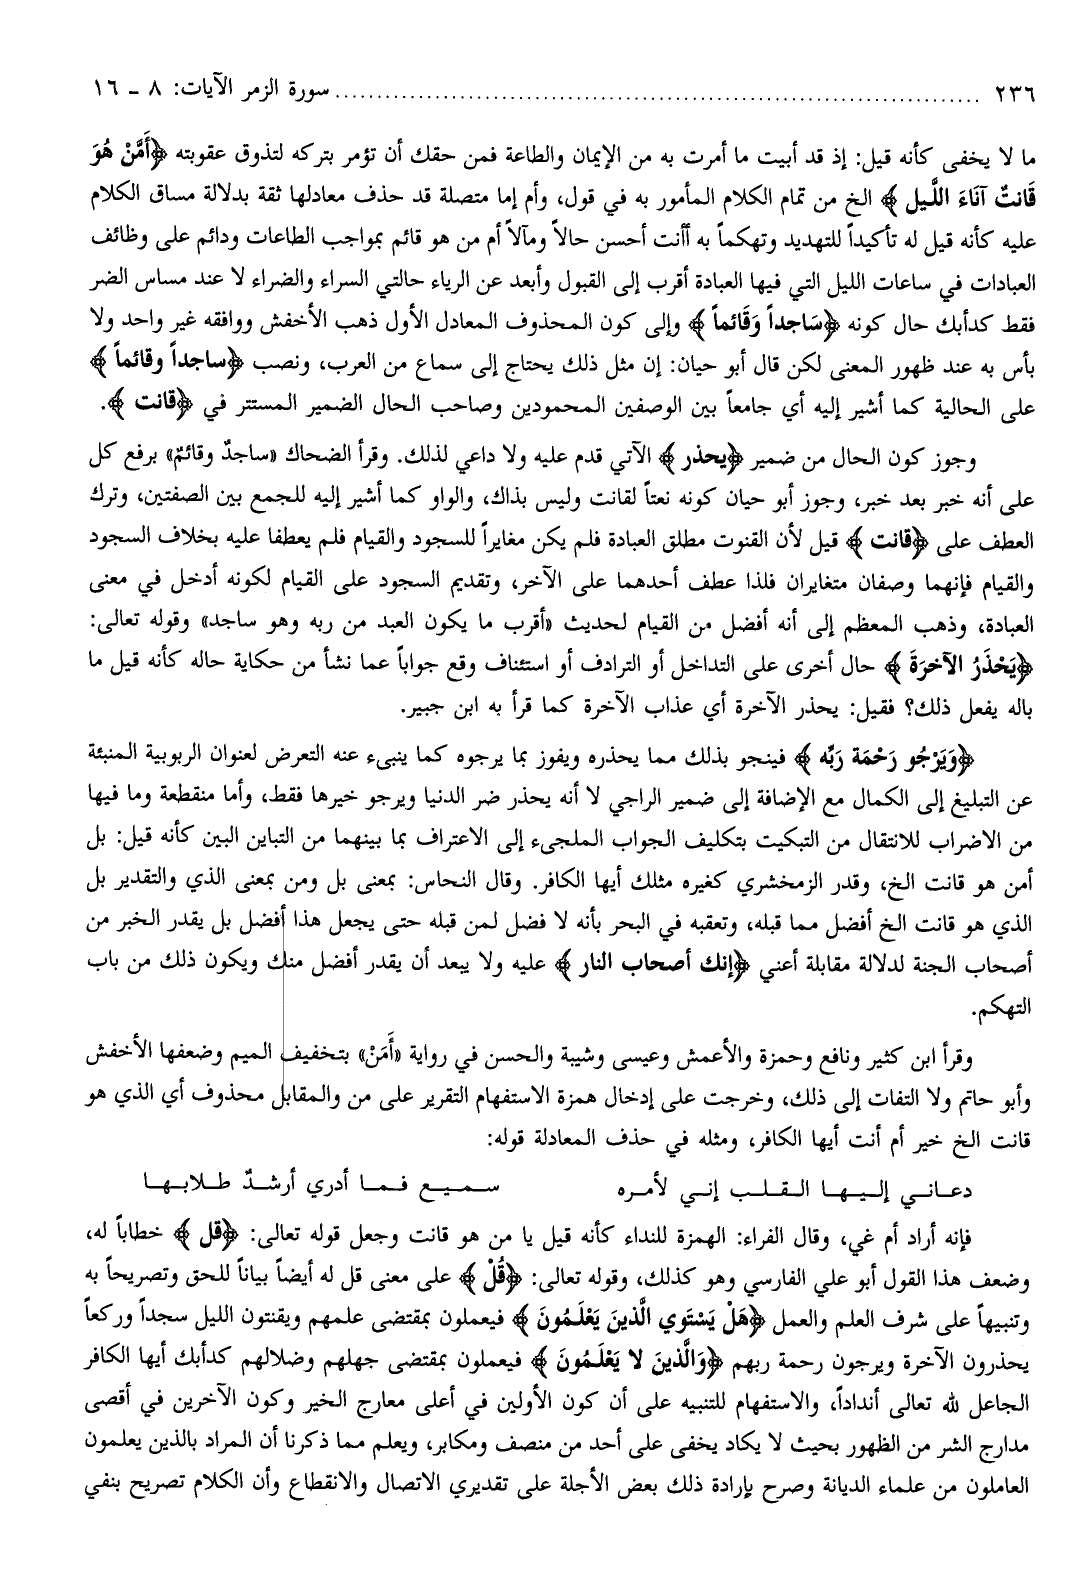 ٢٣٦ ........................................................................... سورة الزمر الآيات: ٨ ـ ١٦
ما لا يخفى كأنه قيل: إذ قد أبيت ما أمرت به من الإيمان والطاعة فمن حقك أن تؤمر بتركه لتذوق عقوبته ﴿أَمَّنْ هُوَ
قَانتٌ آنَاءَ اللَّيل﴾ الخ من تمام الكلام المأمور به في قول، وأم إما متصلة قد حذف معادلها ثقة بدلالة مساق الكلام
عليه كأنه قيل له تأكيداً للتهديد وتهكماً به أأنت أحسن حالاً ومآلاً أم من هو قائم بمواجب الطاعات ودائم على وظائف
العبادات في ساعات الليل التي فيها العبادة أقرب إلى القبول وأبعد عن الرياء حالتي السراء والضراء لا عند مساس الضر
فقط كدأبك حال كونه ﴿سَاجداً وَقَائماً﴾ وإلى كون المحذوف المعادل الأول ذهب الأخفش ووافقه غير واحد ولا
بأس به عند ظهور المعنى لكن قال أبو حيان: إن مثل ذلك يحتاج إلى سماع من العرب، ونصب ﴿ساجداً وقائماً﴾
على الحالية كما أشير إليه أي جامعاً بين الوصفين المحمودين وصاحب الحال الضمير المستتر في ﴿قانت﴾.
وجوز كون الحال من ضمير ﴿يحذر﴾ الآتي قدم عليه ولا داعي لذلك. وقرأ الضحاك «ساجدٌ وقائمٌ» برفع كل
على أنه خبر بعد خبر، وجوز أبو حيان كونه نعتاً لقانت وليس بذاك، والواو كما أشير إليه للجمع بين الصفتين، وترك
العطف على ﴿قانت﴾ قيل لأن القنوت مطلق العبادة فلم يكن مغايراً للسجود والقيام فلم يعطفا عليه بخلاف السجود
والقيام فإنهما وصفان متغايران فلذا عطف أحدهما على الآخر، وتقديم السجود على القيام لكونه أدخل في معنى
العبادة، وذهب المعظم إلى أنه أفضل من القيام لحديث «أقرب ما يكون العبد من ربه وهو ساجد» وقوله تعالى:
﴿يَحْذَرُ الآخرَةَ﴾ حال أخرى على التداخل أو الترادف أو استئناف وقع جواباً عما نشأ من حكاية حاله كأنه قيل ما
باله يفعل ذلك؟ فقيل: يحذر الآخرة أي عذاب الآخرة كما قرأ به ابن جبير.
﴿وَيَرْجُو رَحْمَة رَبِّه﴾ فينجو بذلك مما يحذره ويفوز بما يرجوه كما ينبىء عنه التعرض لعنوان الربوبية المنبئة
عن التبليغ إلى الكمال مع الإضافة إلى ضمير الراجي لا أنه يحذر ضر الدنيا ويرجو خيرها فقط، وأما منقطعة وما فيها
من الاضراب للانتقال من التبكيت بتكليف الجواب الملجىء إلى الاعتراف بما بينهما من التباين البين كأنه قيل: بل
أمن هو قانت الخ، وقدر الزمخشري كغيره مثلك أيها الكافر. وقال النحاس: بمعنى بل ومن بمعنى الذي والتقدير بل
الذي هو قانت الخ أفضل مما قبله، وتعقبه في البحر بأنه لا فضل لمن قبله حتى يجعل هذا أفضل بل يقدر الخبر من
أصحاب الجنة لدلالة مقابلة أعني ﴿إنك أصحاب النار﴾ عليه ولا يبعد أن يقدر أفضل منك ويكون ذلك من باب
التهكم.
وقرأ ابن كثير ونافع وحمزة والأعمش وعيسى وشيبة والحسن في رواية «أَمَنْ» بتخفيف الميم وضعفها الأخفش
وأبو حاتم ولا التفات إلى ذلك، وخرجت على إدخال همزة الاستفهام التقرير على من والمقابل محذوف أي الذي هو
قانت الخ خير أم أنت أيها الكافر، ومثله في حذف المعادلة قوله:
دعـانـي إلـيـهـا الـقـلـب إنـي لأمـره سـمـيـع فـمـا أدري أرشـدٌ طـلابـهـا
فإنه أراد أم غي، وقال الفراء: الهمزة للنداء كأنه قيل يا من هو قانت وجعل قوله تعالى: ﴿قل﴾ خطاباً له،
وضعف هذا القول أبو علي الفارسي وهو كذلك، وقوله تعالى: ﴿قُلْ﴾ على معنى قل له أيضاً بياناً للحق وتصريحاً به
وتنبيهاً على شرف العلم والعمل ﴿هَلْ يَسْتَوي الَّذينَ يَعْلَمُونَ﴾ فيعملون بمقتضى علمهم ويقنتون الليل سجداً وركعاً
يحذرون الآخرة ويرجون رحمة ربهم ﴿وَالَّذينَ لا يَعْلَمُونَ﴾ فيعملون بمقتضى جهلهم وضلالهم كدأبك أيها الكافر
الجاعل لله تعالى أنداداً، والاستفهام للتنبيه على أن كون الأولين في أعلى معارج الخير وكون الآخرين في أقصى
مدارج الشر من الظهور بحيث لا يكاد يخفى على أحد من منصف ومكابر، ويعلم مما ذكرنا أن المراد بالذين يعلمون
العاملون من علماء الديانة وصرح بإرادة ذلك بعض الأجلة على تقديري الاتصال والانقطاع وأن الكلام تصريح بنفي